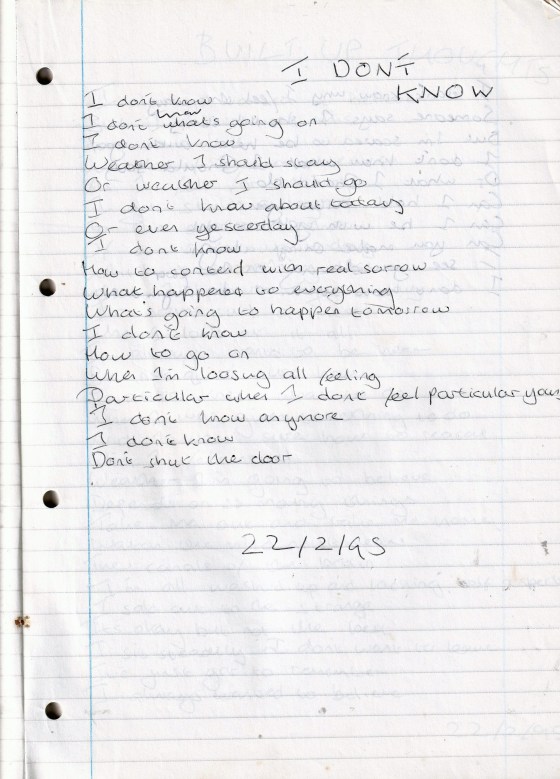 I DON'T
KNOW
I don't know
I don't know what's going on
I don't know
Weather I should stay
Or weather I should go
I don't know about today
Or even yesterday
I don't know
How to contend with real sorrow
What happened to everything
What's going to happen tomorrow
I don't know
How to go on
When I'm loosing all feeling
Particular when I don't feel particular
I don't know anymore
I don't know
Don't shut the door
22/2/95